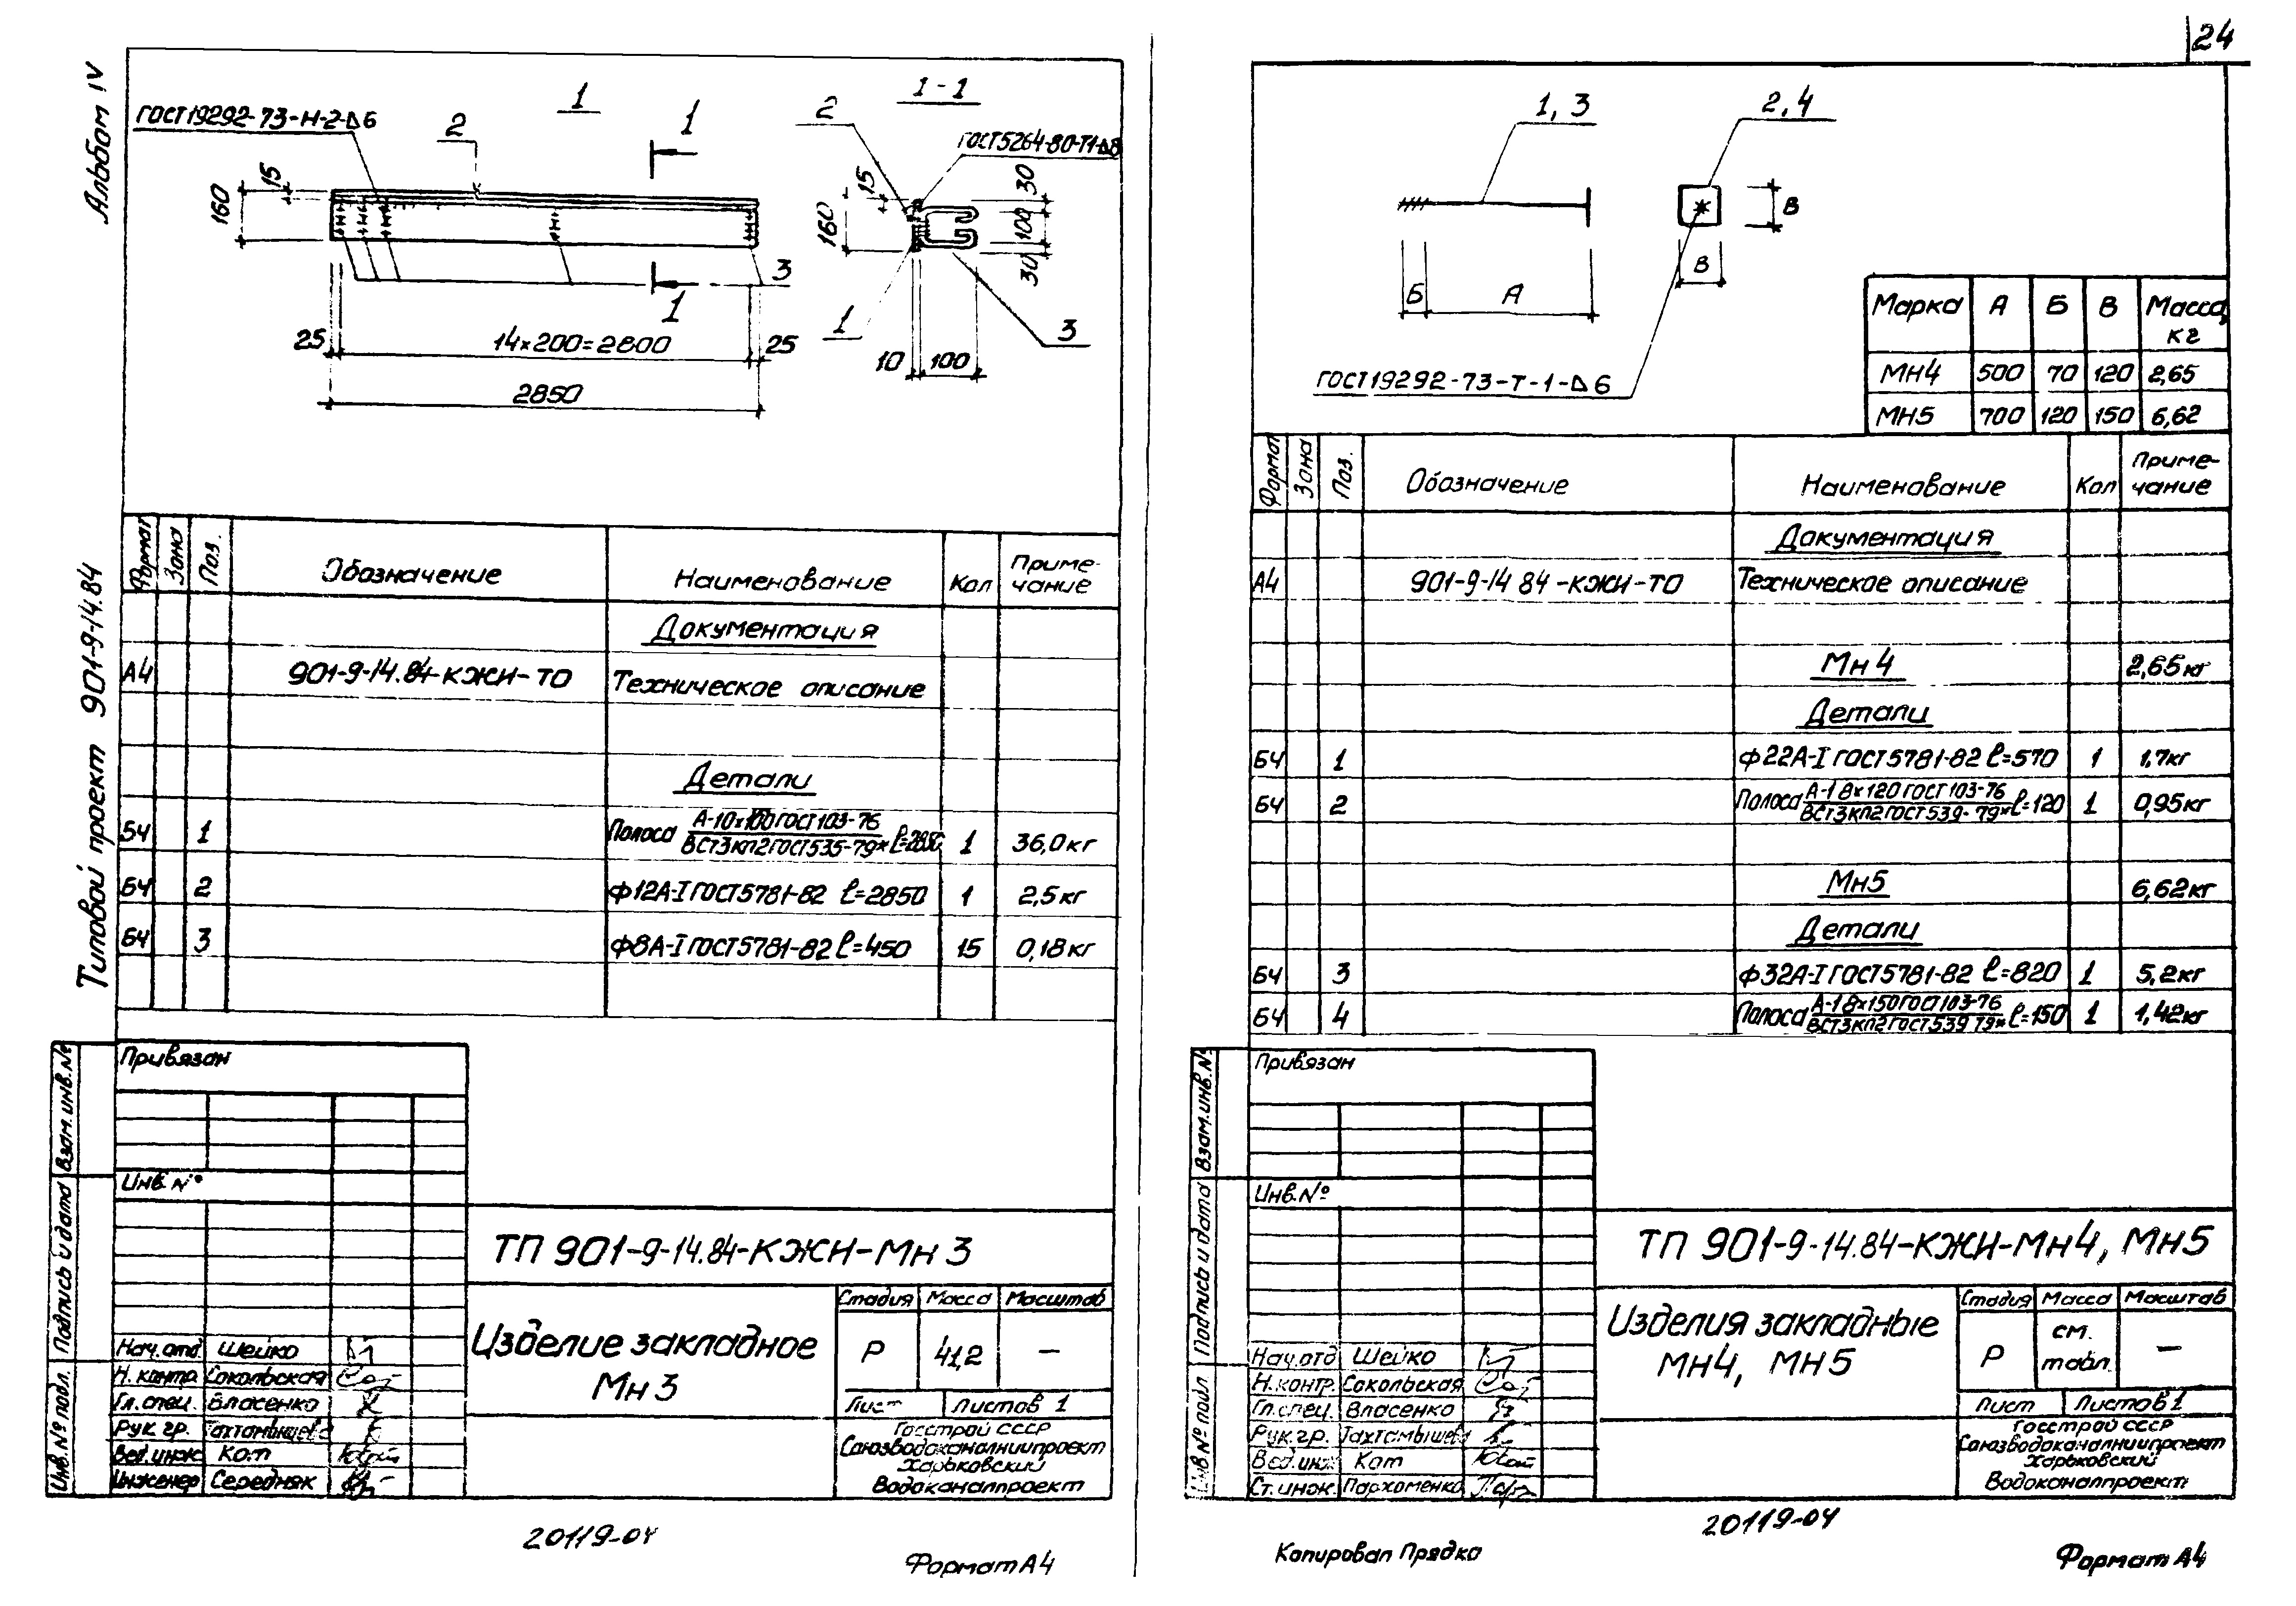 24
Альбом IV
Типовой проект 901-9-14.84
ГОСТ19292-73-Н-2-Δ6
2
1
1
15
160
3
1
25
14×200=2800
25
2850
1-1
2
ГОСТ5264-80-Т1-Δ8
15
30
160
100
30
1
3
10
100
Формат
Зона
Поз.
Обозначение
Наименование
Кол
Приме-
чание
Документация
А4 901-9-14.84-КЖИ-ТО Техническое описание
Детали
Б4 1 Полоса А-10×100 ГОСТ103-76 / ВСТ3КП2ГОСТ535-79* ℓ=2850 1 36,0кг
Б4 2 ф12А-I ГОСТ5781-82 ℓ=2850 1 2,5кг
Б4 3 ф8А-I ГОСТ5781-82 ℓ=450 15 0,18кг
Взам.инв.№
Подпись и дата
Инв.№ подл.
Привязан
Инв.№
ТП 901-9-14.84-КЖИ-Мн 3
Изделие закладное
Мн 3
Стадия Масса Масштаб
Р 41,2 —
Лист Листов 1
Госстрой СССР
Союзводоканалниипроект
Харьковский
Водоканалпроект
Нач.отд. Шейко
Н.контр. Сокольская
Гл.спец. Власенко
Рук.гр. Тахтамышева
Вед.инж Кот
Инженер Середняк
20119-04
Формат А4
1, 3
2,4
Б
А
В
В
ГОСТ19292-73-Т-1-Δ6
Марка А Б В Масса, кг
МН4 500 70 120 2,65
МН5 700 120 150 6,62
Формат
Зона
Поз.
Обозначение
Наименование
Кол
Приме-
чание
Документация
А4 901-9-14 84-КЖИ-ТО Техническое описание
Мн 4 2,65кг
Детали
Б4 1 ф22А-I ГОСТ5781-82 ℓ=570 1 1,7кг
Б4 2 Полоса А-1 8×120 ГОСТ103-76 / ВСТ3КП2ГОСТ539-79* ℓ=120 1 0,95кг
Мн5 6,62кг
Детали
Б4 3 ф32А-I ГОСТ5781-82 ℓ=820 1 5,2кг
Б4 4 Полоса А-1 8×150 ГОСТ103-76 / ВСТ3КП2ГОСТ539 79* ℓ=150 1 1,42кг
Взам.инв.№
Подпись и дата
Инв.№ подл
Привязан
Инв.№
ТП 901-9-14.84-КЖИ-Мн4, Мн5
Изделия закладные
МН4, МН5
Стадия Масса Масштаб
Р см. табл. —
Лист Листов 1
Госстрой СССР
Союзводоканалниипроект
Харьковский
Водоканалпроект
Нач.отд Шейко
Н.контр. Сокольская
Гл.спец. Власенко
Рук.гр. Тахтамышева
Вед.инж Кот
Ст.инж. Пархоменко
20119-04
Копировал Прядко
Формат А4